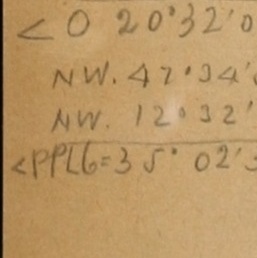 <O 20°32'0
NW. 47°34'
NW. 12°32'
<PPL6=35°02'3